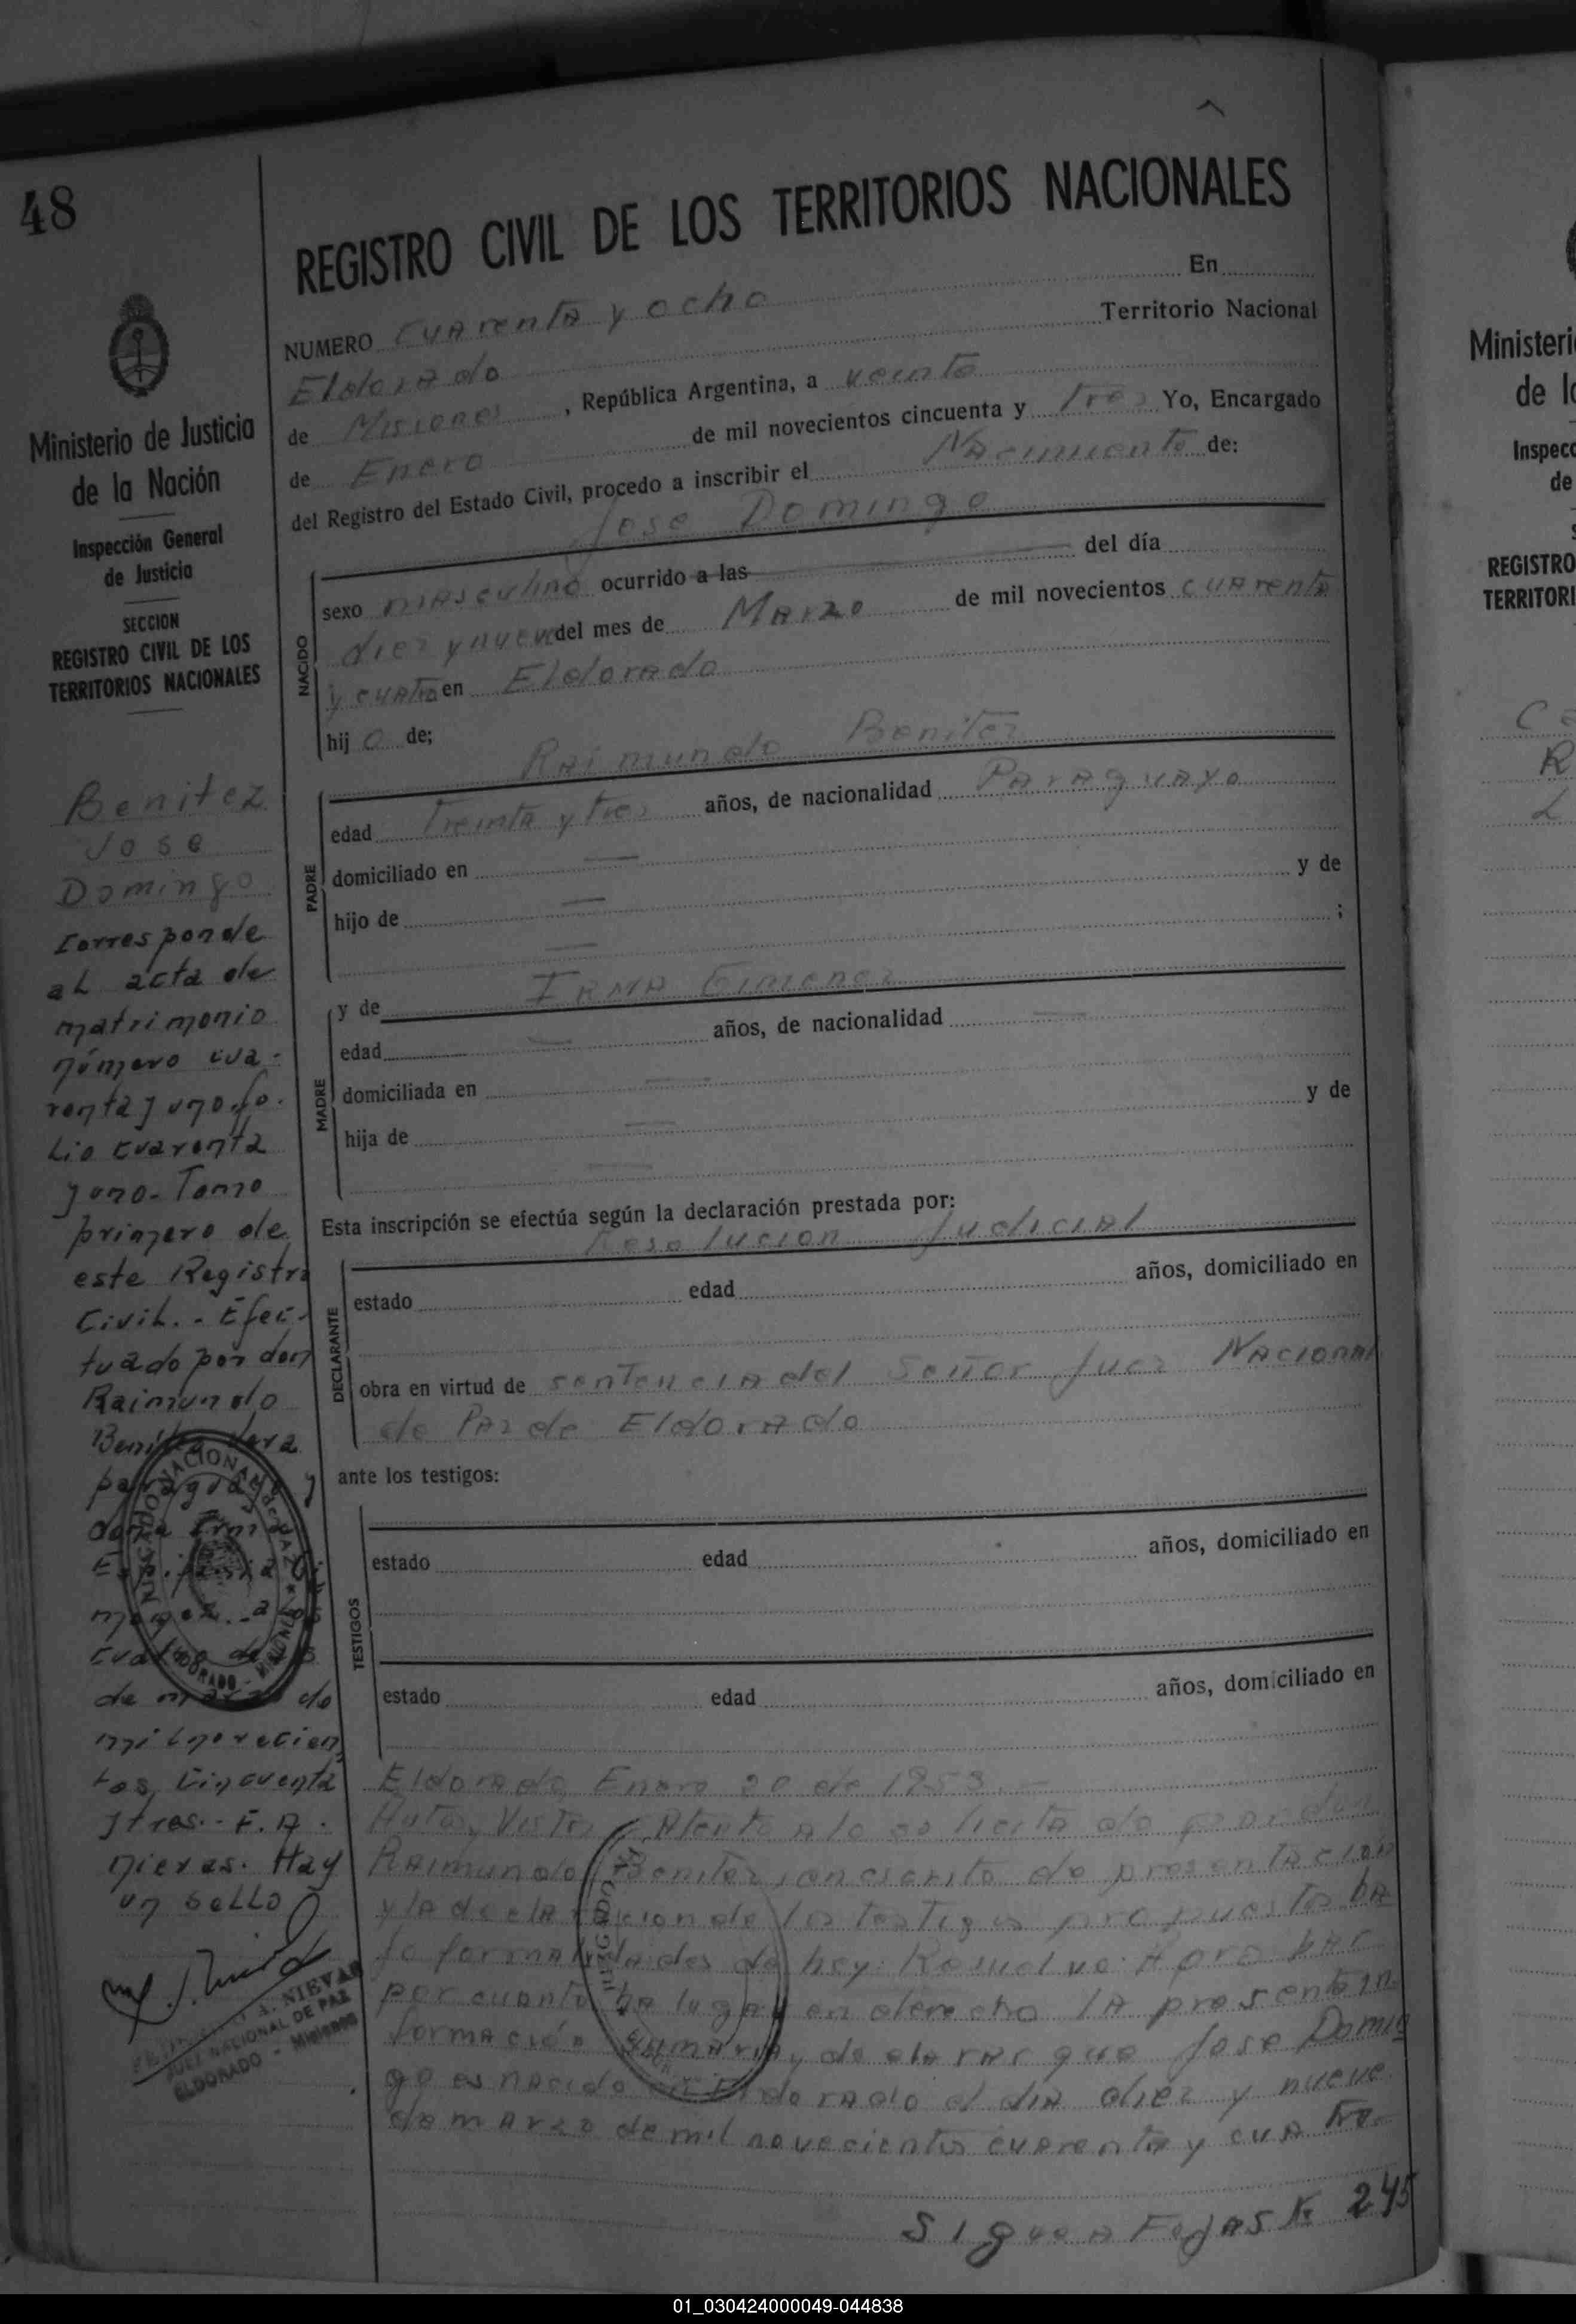 48
REGISTRO CIVIL DE LOS TERRITORIOS NACIONALES
NUMERO Cuarenta y ocho En
Eldorado Territorio Nacional
de Misiones, República Argentina, a veinte
de Enero de mil novecientos cincuenta y tres Yo, Encargado
del Registro del Estado Civil, procedo a inscribir el Nacimiento de:
Jose Domingo
NACIDO
sexo masculino ocurrido a las del día
diez y nueve del mes de Marzo de mil novecientos cuarenta
y cuatro en Eldorado
hijo de;
Raimundo Benitez
PADRE
edad treinta y tres años, de nacionalidad Paraguayo
domiciliado en
hijo de y de
;
MADRE
y de Irma Gimenez
edad años, de nacionalidad
domiciliada en
hija de y de
Esta inscripción se efectúa según la declaración prestada por:
Resolucion Judicial
DECLARANTE
estado edad años, domiciliado en
obra en virtud de sentencia del Señor Juez Nacional
de Paz de Eldorado
ante los testigos:
TESTIGOS
estado edad años, domiciliado en
estado edad años, domiciliado en
Eldorado, Enero 20 de 1953.-
Autos y Vistos, Atento a lo solicitado por don
Raimundo Benitez, en escrito de presentacion
y la declaracion de los testigos propuestos ba
jo formalidades de ley: Resuelvo: Aprobar
por cuanto ha lugar en derecho la presente in
formación sumaria y declarar que Jose Domin
go es nacido en Eldorado el dia diez y nueve
de marzo de mil novecientos cuarenta y cuatro
Sigue a Fojas Nº 245
Ministerio de Justicia
de la Nación
Inspección General
de Justicia
SECCION
REGISTRO CIVIL DE LOS
TERRITORIOS NACIONALES
Benitez
Jose
Domingo
Corresponde
al acta de
matrimonio
número cua-
renta y uno, fo-
lio cuarenta
y uno- Tomo
primero de
este Registro
Civil.- Efec-
tuado por don
Raimundo
Benitez Vera
paraguayo y
doña Irma
Gi-
menez.- a los
cuatro días
de marzo de
mil novecien
tos cincuenta
y tres.- F.A.
Nievas. Hay
un sello
JUZGADO NACIONAL de PAZ
ELDORADO - MISIONES
A. NIEVAS
JUEZ NACIONAL DE PAZ
ELDORADO - Misiones
Ministeri
de l
Inspecc
de
REGISTRO
TERRITORI
01_030424000049-044838